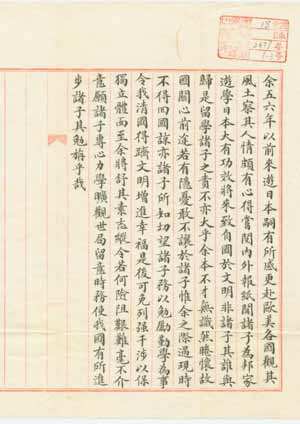 余五六年以前來遊日本嗣有所感更赴歐美各國觀其
風土察其人情頗有心得嘗閱內外報紙聞諸子為邦家
遊學日本大有功效將來致自國於文明非諸子其誰與
歸是留學諸子之責不亦大乎余本不才無識然睠懷故
國關心前途若有隱憂敢不讓於諸子惟余之際過現時
不得回國諒亦諸子所知切望諸子務以勉勵勤學為事
令我清國得躋文明增進幸福是後可免列強干涉以保
獨立體面至余將舒其素志縱令若何險阻艱難毫不介
意願諸子專心力學曠觀世局留意時務使我國有所進
步諸子其勉旃乎哉